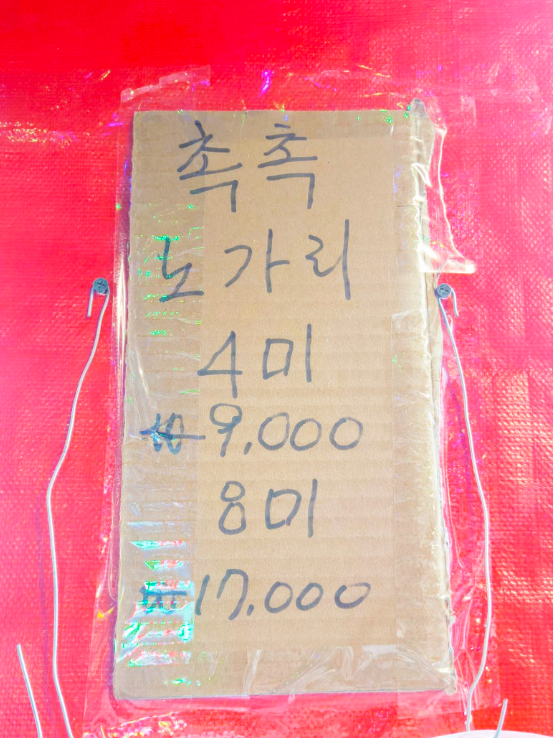 촉촉
노가리
4미
₩9,000
8미
₩17,000